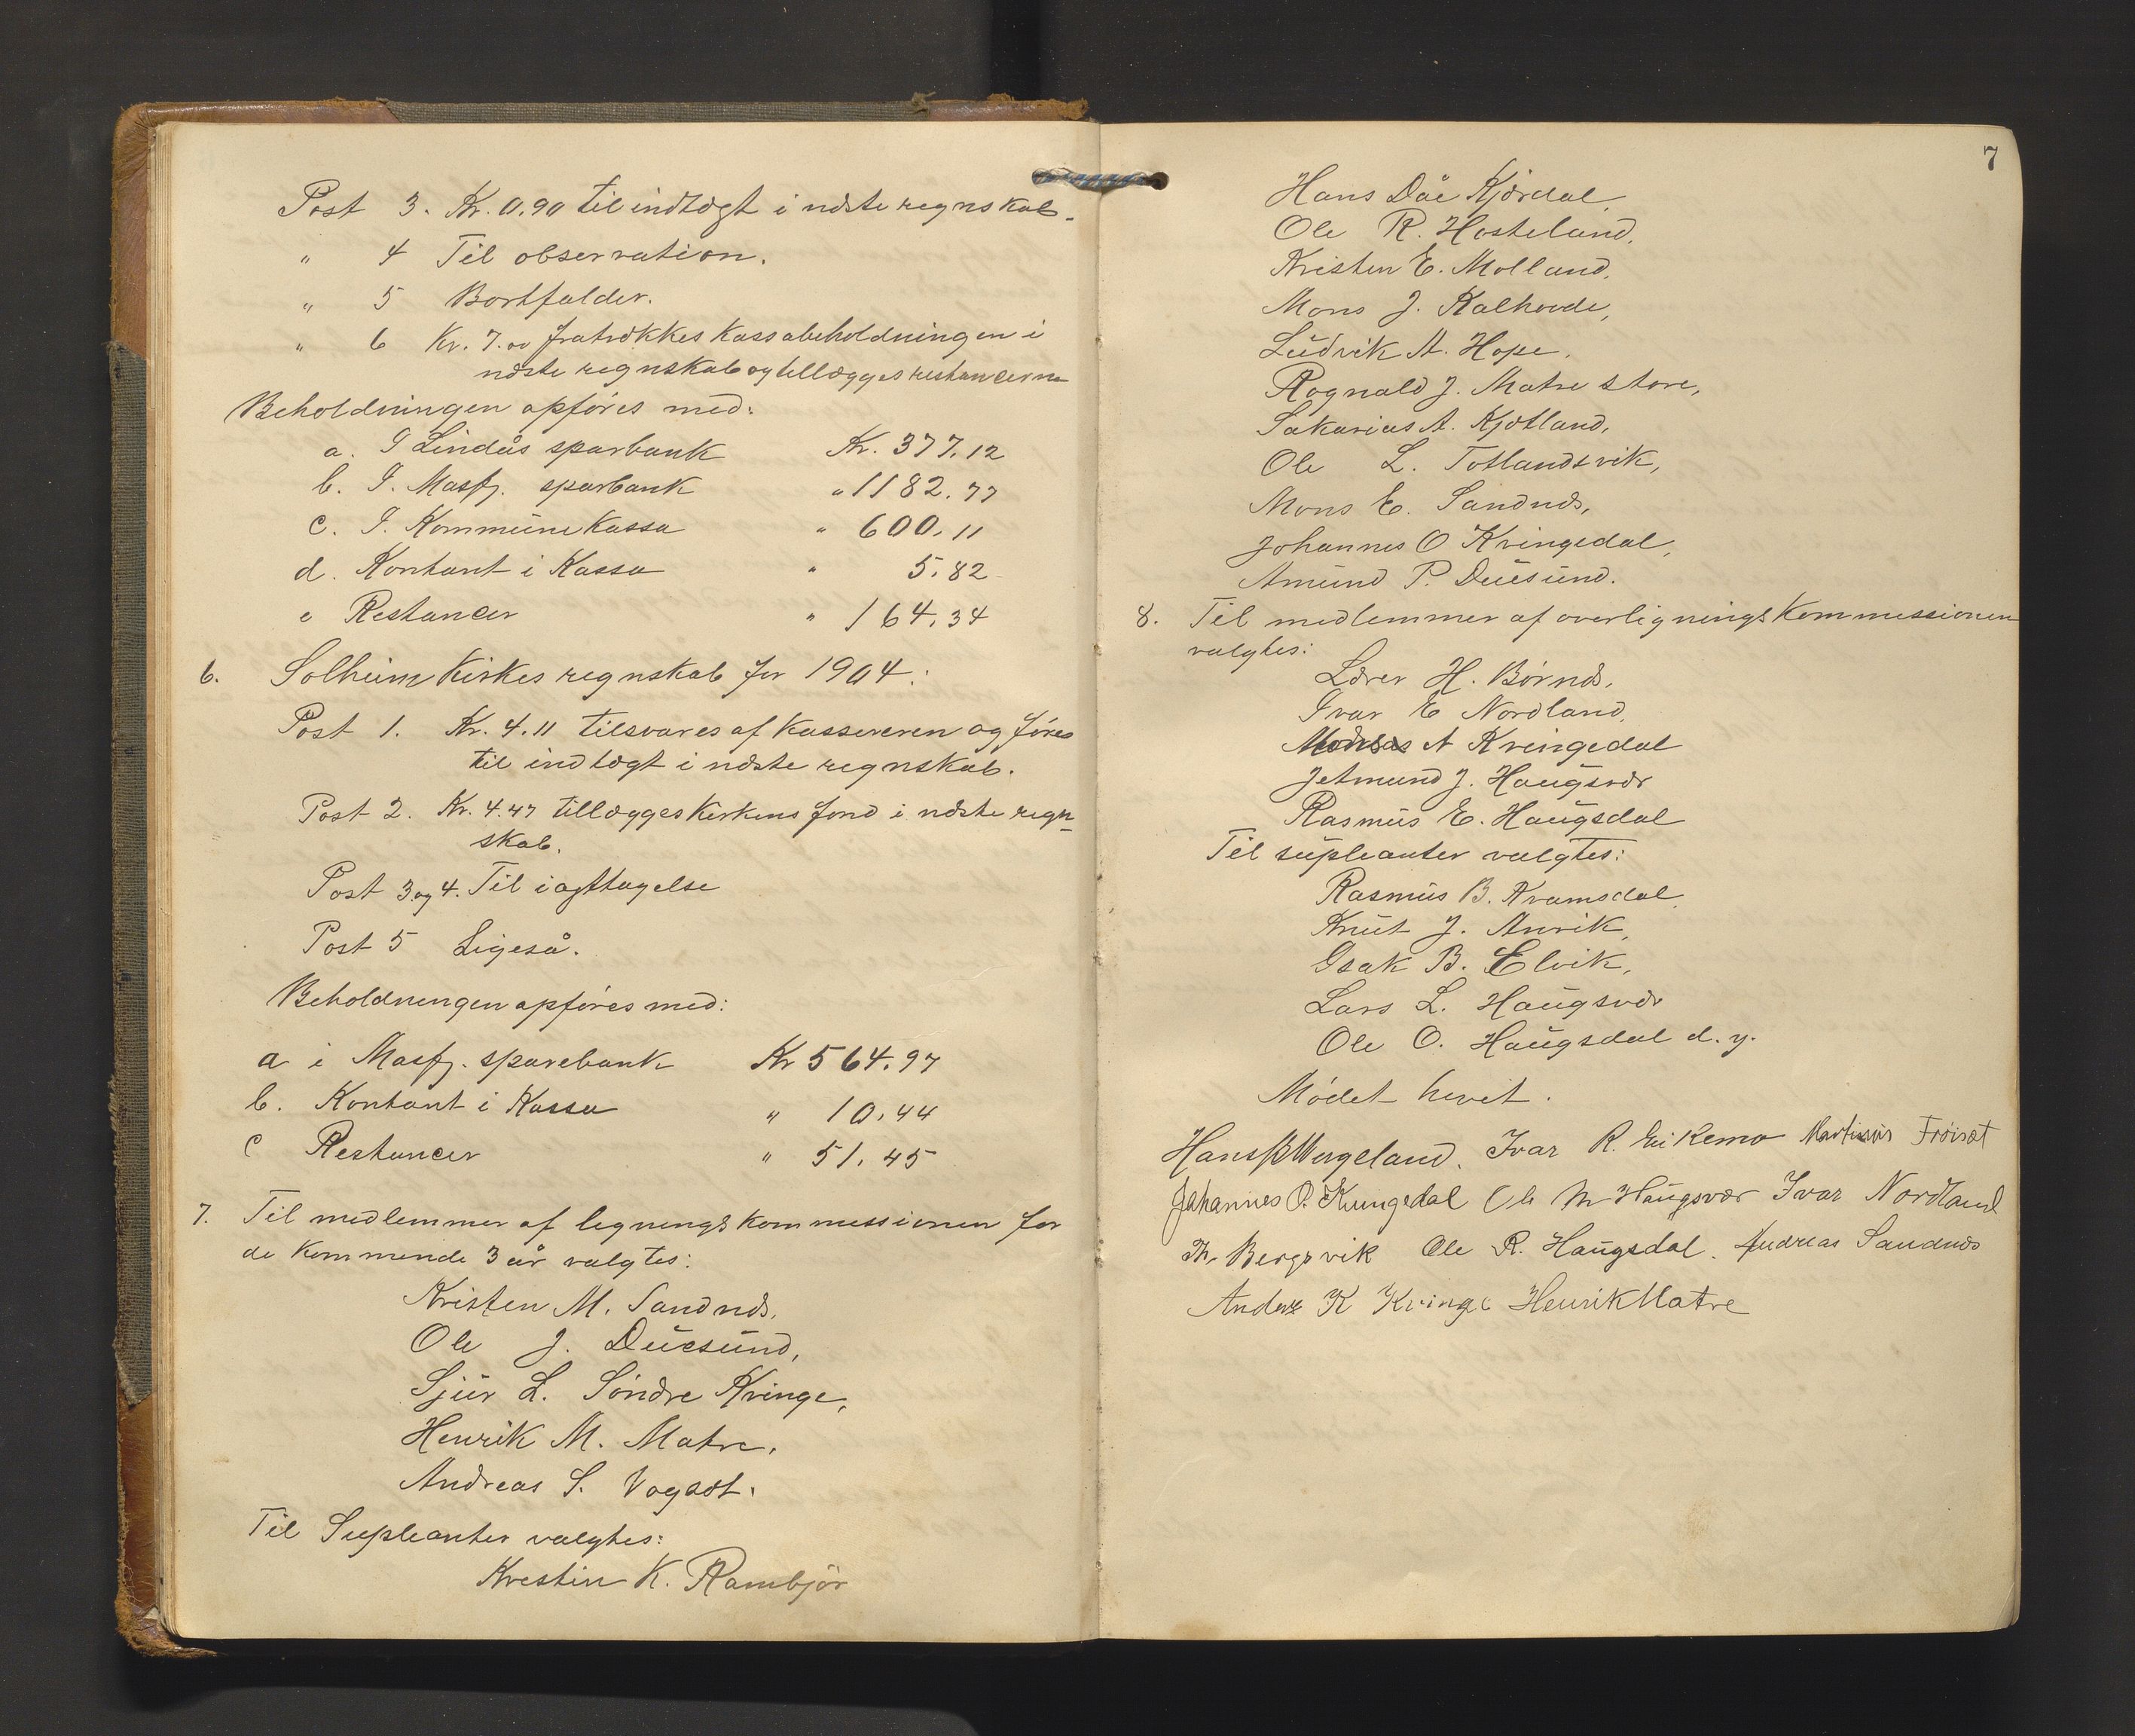 Post 3. Kr. 0.90 til indtægt i næste regnskab.
" 4 Til observation.
" 5 Bortfalder.
" 6 Kr. 7.00 fratrækkes kassabeholdningen i
næste regnskab og tillægges restancerne
Beholdningen opføres med:
a. I Lindås sparbank Kr. 377,12
b. I. Masfj. sparbank " 1182.77
c. I. Kommunekassa " 600,11
d. Kontant i Kassa " 5,82
e Restancer " 164,34
6. Solheim Kirkes regnskab for 1904:
Post 1. Kr. 4.11 tilsvares af kassereren og føres
til indtægt i næste regnskab.
Post 2. Kr. 4.47 tillægges kirkens fond i næste regn-
skab.
Post 3 og 4. Til iagttagelse
Post 5 Ligeså.
Beholdningen opføres med:
a i Masfj. sparebank Kr 564.97
b. Kontant i Kassa " 10,44
c Restancer " 51,45
7. Til medlemmer af ligningskommissionen for
de kommende 3 år valgtes:
Kristen M. Sandnæs,
Ole J. Duesund,
Sjur L. Søndre Kvinge,
Henrik M. Matre,
Andreas S. Vagsæt.
Til Supleanter valgtes:
Kristen K. Rambjør
7
Hans Dåe Kjørdal,
Ole R. Hosteland,
Kristen E. Molland,
Mons J. Kalhovde,
Ludvik A. Hope,
Rognald J. Matre store,
Sakarias A. Kjætland,
Ole L. Totlandsvik,
Mons E. Sandnæs,
Johannes O Kvingedal,
Amund P. Duesund.
8. Til medlemmer af overligningskommissionen
valgtes:
Lærer H. Børnæs,
Ivar E Nordland,
A Kvingedal
Jetmund J. Haugsvær
Rasmus E. Haugsdal
Til supleanter valgtes:
Rasmus B. Kvamsdal,
Knut J. Anvik,
Isak B. Elvik,
Lars L. Haugsvær
Ole O. Haugsdal d. y.
Mødet hevet.
Hans Wergeland. Ivar R. Eikemo Martinus Frøiset
Johannes O. Kvingedal Ole M Haugsvær Ivar Nordland
Th. Bergsvik Ole R. Haugsdal. Andreas Sandnæs
Anders K Kvinge Henrik Matre